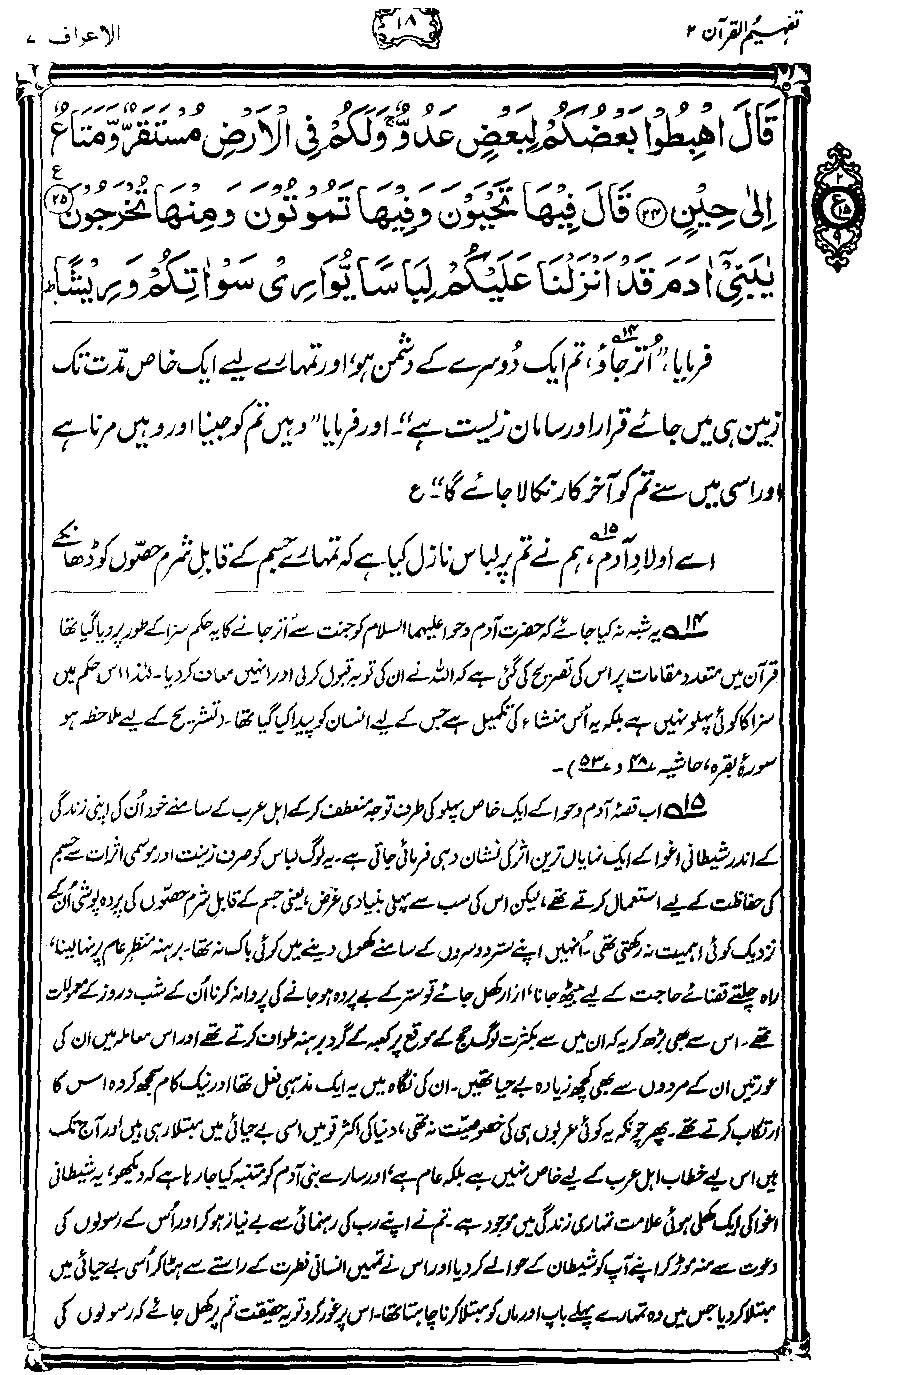 تفہیم القرآن ۲
۱۸
الاعراف ۷
قَالَ اهْبِطُوْا بَعْضُكُمْ لِبَعْضٍ عَدُوٌّ ۚ وَلَكُمْ فِي الْاَرْضِ مُسْتَقَرٌّ وَّمَتَاعٌ
اِلٰى حِيْنٍ ﴿۲۴﴾ قَالَ فِيْهَا تَحْيَوْنَ وَفِيْهَا تَمُوْتُوْنَ وَمِنْهَا تُخْرَجُوْنَ ﴿۲۵﴾ ع
يٰبَنِيْٓ اٰدَمَ قَدْ اَنْزَلْنَا عَلَيْكُمْ لِبَاسًا يُّوَارِيْ سَوْاٰتِكُمْ وَرِيْشًا ؕ
۲
ع
۱۵
۹
فرمایا، ”اُتر جاؤ،۱۴؎ تم ایک دُوسرے کے دشمن ہو، اور تمہارے لیے ایک خاص مدّت تک
زمین ہی میں جائے قرار اور سامانِ زیست ہے“۔ اور فرمایا ”وہیں تم کو جینا اور وہیں مرنا ہے
اور اسی میں سے تم کو آخر کار نکالا جائے گا“۔ ع
اے اولادِ آدم،۱۵؎ ہم نے تم پر لباس نازل کیا ہے کہ تمہارے جسم کے قابلِ شرم حصّوں کو ڈھانکے
۱۴؎ یہ شبہ نہ کیا جائے کہ حضرت آدم و حوا علیہما السلام کو جنت سے اُتر جانے کا یہ حکم سزا کے طور پر دیا گیا تھا
قرآن میں متعدد مقامات پر اس کی تصریح کی گئی ہے کہ اللہ نے ان کی توبہ قبول کر لی اور انہیں معاف کر دیا۔ لہٰذا اس حکم میں
سزا کا کوئی پہلو نہیں ہے بلکہ یہ اُس منشاء کی تکمیل ہے جس کے لیے انسان کو پیدا کیا گیا تھا۔ (تشریح کے لیے ملاحظہ ہو
سورۂ بقرہ، حاشیہ ۴۸ و ۵۳)۔
۱۵؎ اب قصۂ آدم و حوا کے ایک خاص پہلو کی طرف توجہ منعطف کر کے اہل عرب کے سامنے خود اُن کی اپنی زندگی
کے اندر شیطانی اغوا کے ایک نمایاں ترین اثر کی نشان دہی فرمائی جاتی ہے۔ یہ لوگ لباس کو صرف زینت اور موسمی اثرات سے جسم
کی حفاظت کے لیے استعمال کرتے تھے، لیکن اس کی سب سے پہلی بنیادی غرض، یعنی جسم کے قابلِ شرم حصّوں کی پردہ پوشی اُن کے
نزدیک کوئی اہمیت نہ رکھتی تھی۔ اُنہیں اپنے ستر دوسروں کے سامنے کھول دینے میں کوئی باک نہ تھا۔ برہنہ منظرِ عام پر نہا لینا،
راہ چلتے قضائے حاجت کے لیے بیٹھ جانا، ازار کھل جائے تو ستر کے بے پردہ ہو جانے کی پروا نہ کرنا اُن کے شب و روز کے معمولات
تھے۔ اس سے بھی بڑھ کر یہ کہ ان میں سے بکثرت لوگ حج کے موقع پر کعبہ کے گرد برہنہ طواف کرتے تھے اور اس معاملہ میں ان کی
عورتیں ان کے مردوں سے بھی کچھ زیادہ بے حیا تھیں۔ ان کی نگاہ میں یہ ایک مذہبی فعل تھا اور نیک کام سمجھ کر وہ اس کا
ارتکاب کرتے تھے۔ پھر چونکہ یہ کوئی عربوں ہی کی خصوصیّت نہ تھی، دنیا کی اکثر قومیں اسی بے حیائی میں مبتلا رہی ہیں اور آج تک
ہیں اس لیے خطاب اہل عرب کے لیے خاص نہیں ہے بلکہ عام ہے، اور سارے بنی آدم کو متنبہ کیا جا رہا ہے کہ دیکھو، یہ شیطانی
اغوا کی ایک کھلی ہوئی علامت تمہاری زندگی میں موجود ہے۔ تم نے اپنے رب کی رہنمائی سے بے نیاز ہو کر اور اُس کے رسولوں کی
دعوت سے منہ موڑ کر اپنے آپ کو شیطان کے حوالے کر دیا اور اس نے تمہیں انسانی فطرت کے راستے سے ہٹا کر اُسی بے حیائی میں
مبتلا کر دیا جس میں وہ تمہارے پہلے باپ اور ماں کو مبتلا کرنا چاہتا تھا۔ اس پر غور کرو تو یہ حقیقت تم پر کھل جائے کہ رسولوں کی